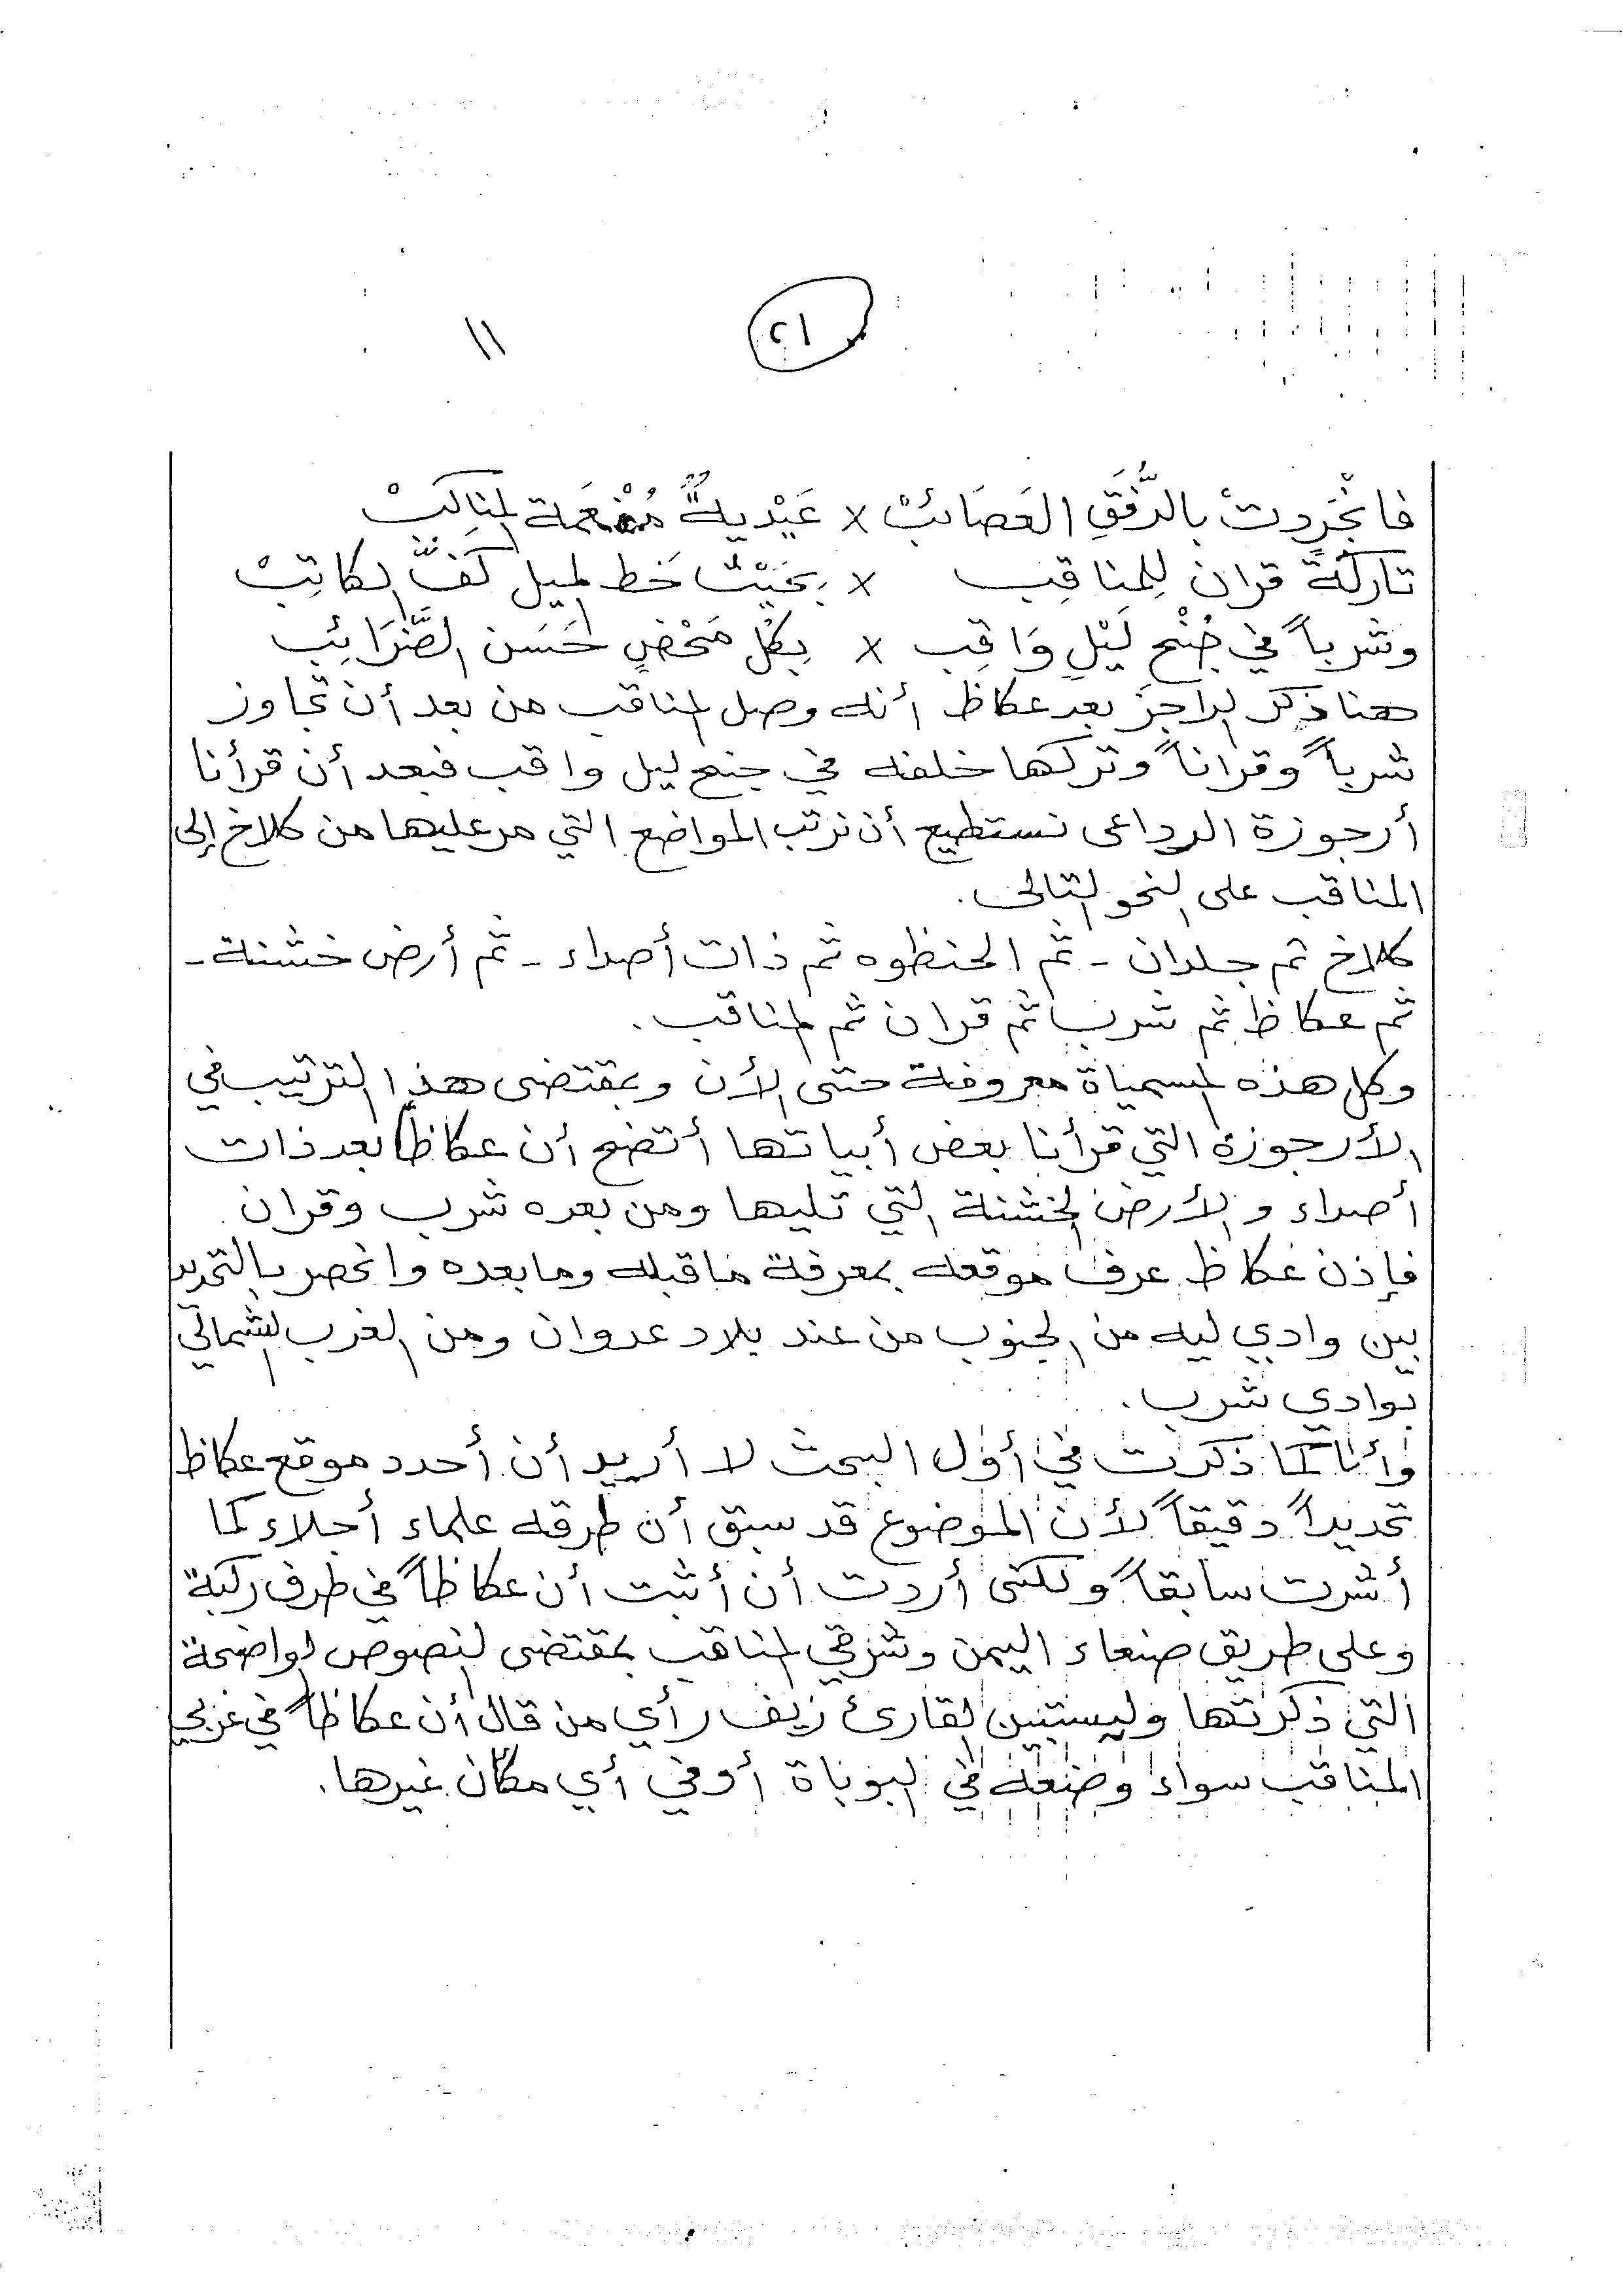 ١٢ ١١
فانجَردتْ بالرُّفَقِ العَصَائبْ × عَيْديةً مُفْعَمة المنَاكبْ
تاركةً قران لِلمناقِب × بحَيْثُ خَط الميل كَفُّ الكاتِبْ
وشرباً في جُنْحِ لَيْلٍ وَاقِب × بِكل مَحْضٍ حَسَن الضَّرَائِب
هنا ذكر الراجز بعد عكاظ أنه وصل المناقب من بعد أن تجاوز
شرباً وقراناً وتركها خلفه في جنح ليل واقب فبعد أن قرأنا
أرجوزة الرداعى نستطيع أن نرتب المواضع التي مر عليها من كلاخ إلى
المناقب على النحو التالى.
كلاخ ثم جلدان - ثم الحنظوه ثم ذات أصداء - ثم أرض خشنة -
ثم عكاظ ثم شرب ثم قران ثم المناقب.
وكل هذه المسمياة معروفة حتى الأن وبمقتضى هذا الترتيب في
الأرجوزة التي قرأنا بعض أبياتها أتضح أن عكاظاً بعد ذات
أصداء والأرض الخشنة التي تليها ومن بعده شرب وقران
فإذن عكاظ عرف موقعه بمعرفة ماقبله وما بعده وانحصر بالتحديد
بين وادي ليه من الجنوب من عند بلاد عدوان ومن الغرب الشمالي
بوادي شرب.
وأنا كما ذكرت في أول البحث لا أريد أن أحدد موقع عكاظ
تحديداً دقيقاً لأن الموضوع قد سبق أن طرقه علماء أجلاء كما
أشرت سابقاً ولكنى أردت أن أثبت أن عكاظاً في طرف ركبة
وعلى طريق صنعاء اليمن وشرقي المناقب بمقتضى النصوص الواضحة
التي ذكرتها وليستبين القارئ زيف رأي من قال أن عكاظاً في غربي
المناقب سواء وضعه في البوباة أو في أي مكان غيرها.